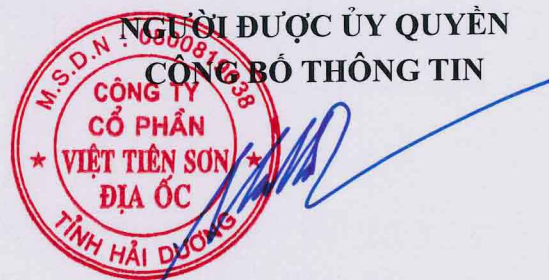 NGƯỜI ĐƯỢC ỦY QUYỀN
CÔNG BỐ THÔNG TIN
M.S.D.N :
CÔNG TY
CỔ PHẦN
VIỆT TIÊN SƠN
ĐỊA ỐC
TỈNH HẢI DƯƠNG